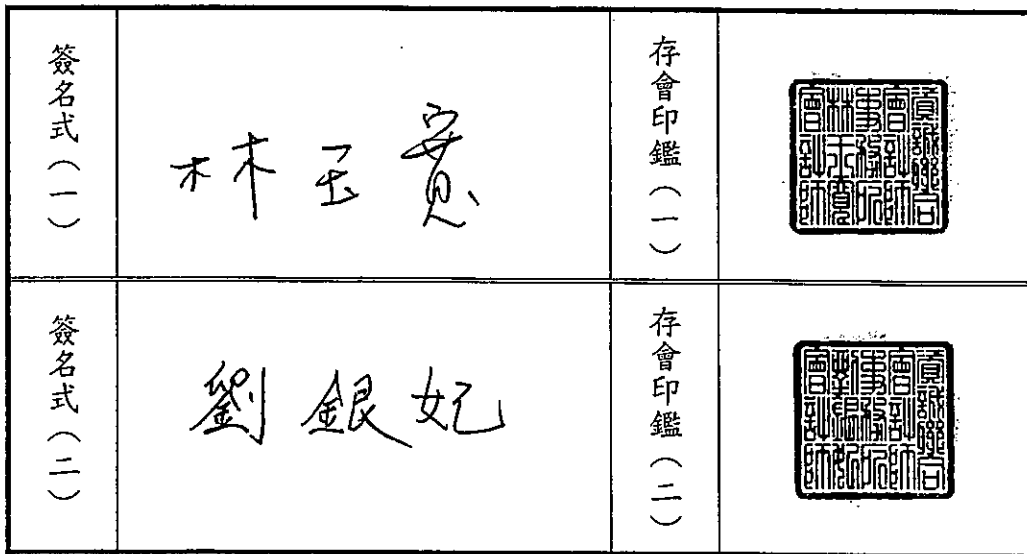 簽名式(一)
林玉寬
存會印鑑(一)
資誠聯合
會計師
事務所
林玉寬
會計師
簽名式(二)
劉銀妃
存會印鑑(二)
資誠聯合
會計師
事務所
劉銀妃
會計師